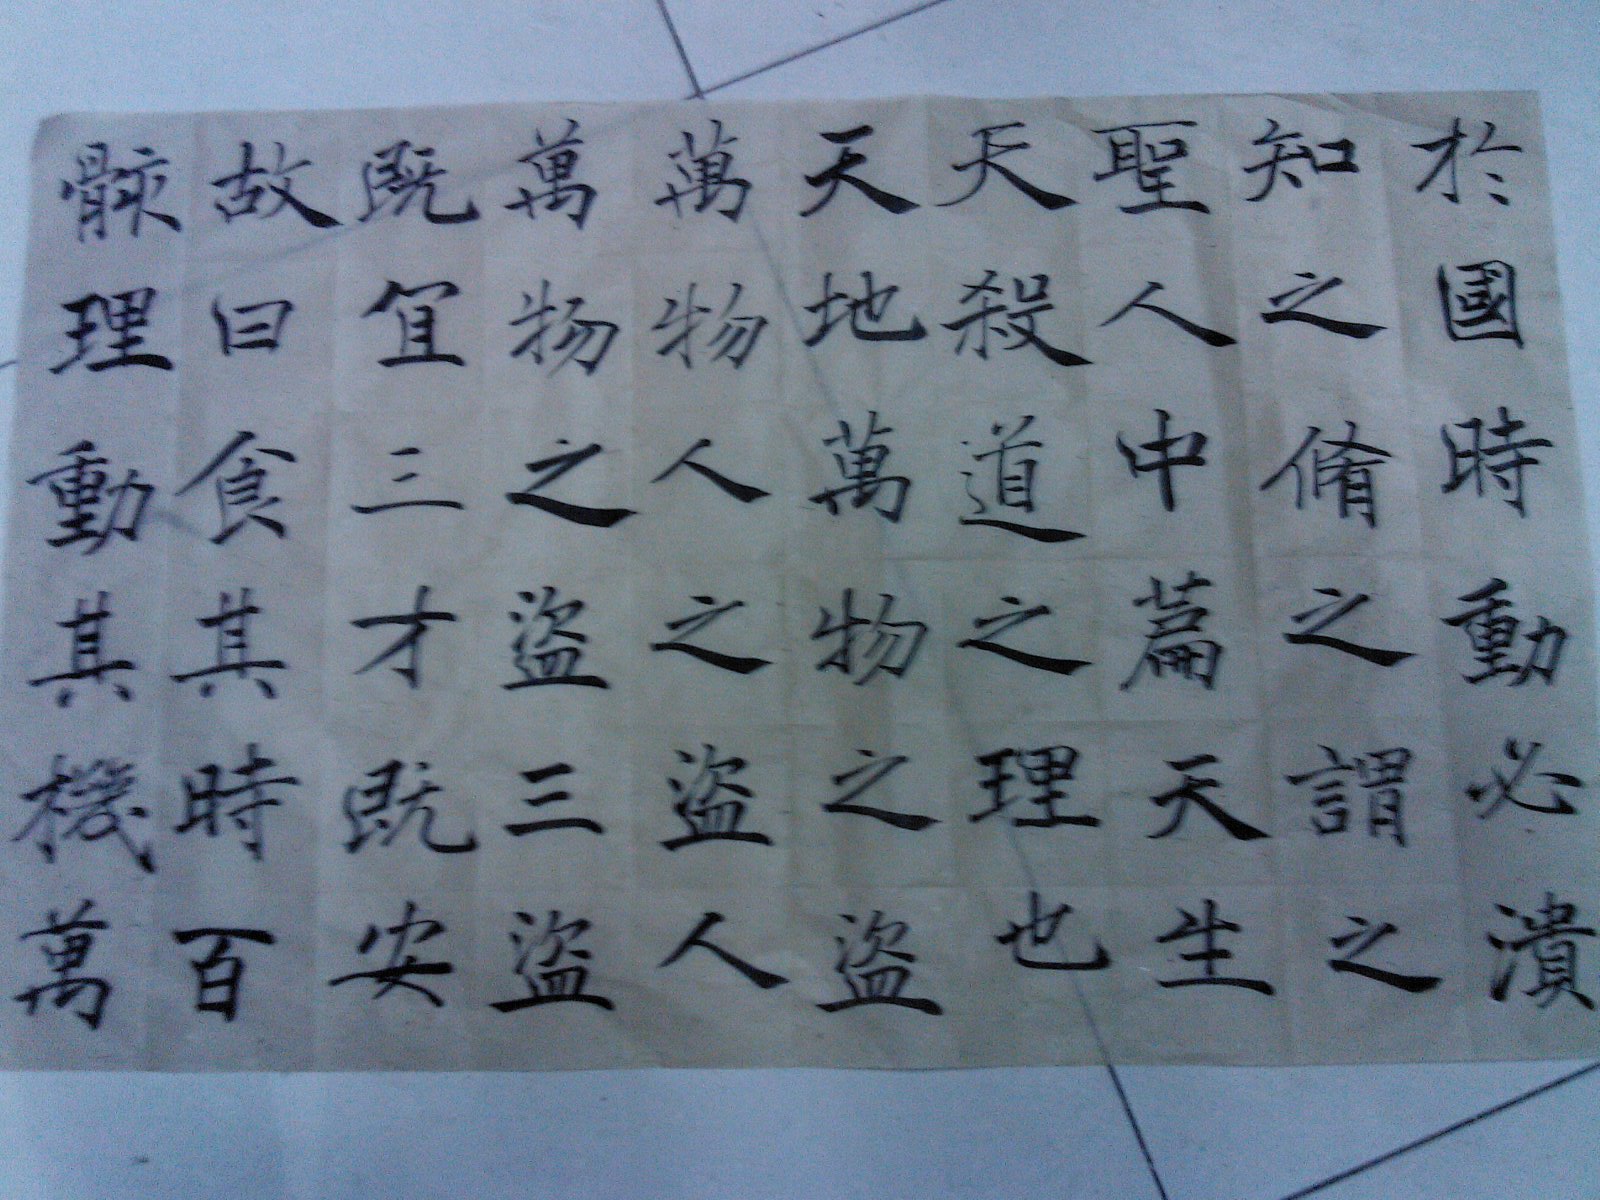 於國時動必潰
知之脩之謂之
聖人中篇天生
天殺道之理也
天地萬物之盜
萬物人之盜人
萬物之盜三盜
既宜三才既安
故曰食其時百
骸理動其機萬